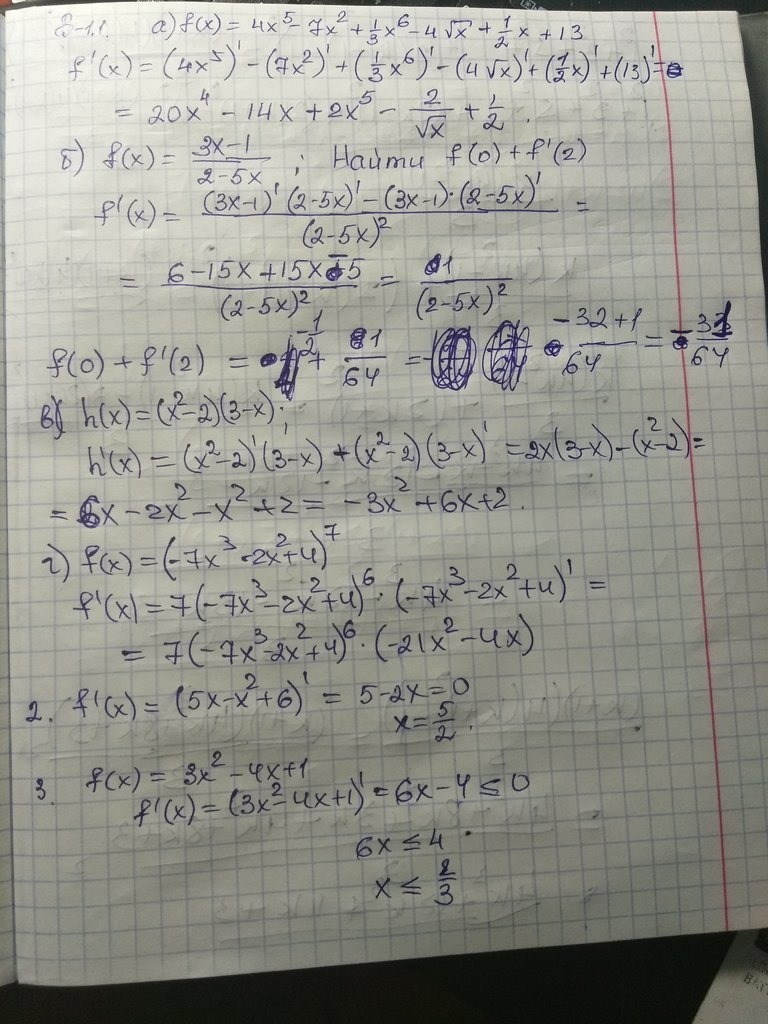 В-1.1. а) f(x) = 4x⁵ - 7x² + 1/3 x⁶ - 4√x + 1/2 x + 13
f'(x) = (4x⁵)' - (7x²)' + (1/3 x⁶)' - (4√x)' + (1/2 x)' + (13)' =
= 20x⁴ - 14x + 2x⁵ - 2/√x + 1/2.
б) f(x) = (3x-1)/(2-5x); Найти f(0) + f'(2)
f'(x) = ((3x-1)'(2-5x)' - (3x-1)·(2-5x)')/(2-5x)² =
= (6-15x+15x-5)/(2-5x)² = 1/(2-5x)²
f(0) + f'(2) = -1/2 + 1/64 = (-32+1)/64 = -31/64
в) h(x) = (x²-2)(3-x);
h'(x) = (x²-2)'(3-x) + (x²-2)(3-x)' = 2x(3-x) - (x²-2) =
= 6x - 2x² - x² + 2 = -3x² + 6x + 2.
г) f(x) = (-7x³ - 2x² + 4)⁷
f'(x) = 7(-7x³ - 2x² + 4)⁶ · (-7x³ - 2x² + 4)' =
= 7(-7x³ - 2x² + 4)⁶ · (-21x² - 4x)
2. f'(x) = (5x - x² + 6)' = 5 - 2x = 0
x = 5/2.
3. f(x) = 3x² - 4x + 1
f'(x) = (3x² - 4x + 1)' = 6x - 4 ≤ 0
6x ≤ 4
x ≤ 2/3